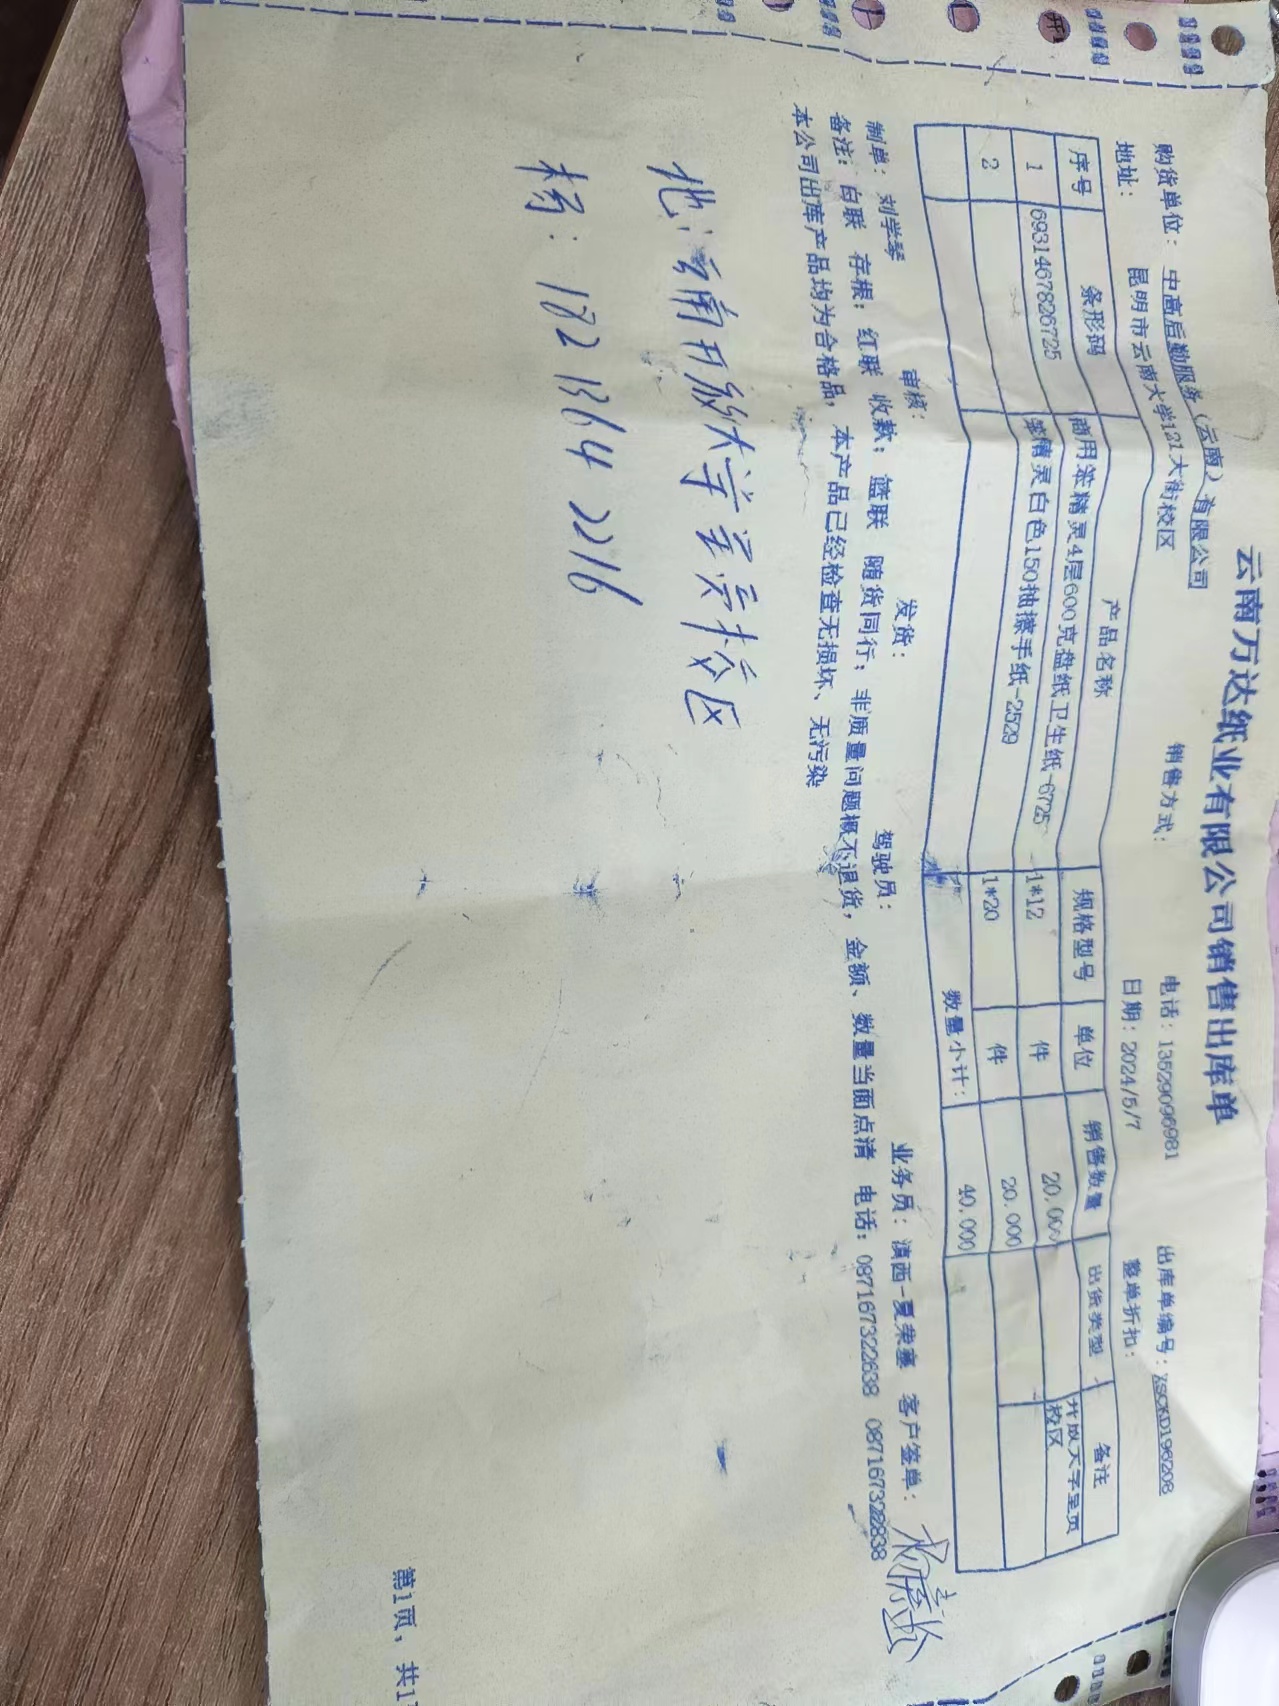 云南万达纸业有限公司销售出库单
购货单位： 中高后勤服务（云南）有限公司 销售方式： 电话：13529096981 出库单编号：XSCKD196208
地址： 昆明市云南大学121大街校区 日期：2024/5/7 整单折扣：
序号 条形码 产品名称 规格型号 单位 销售数量 出货类型 备注
1 6931467826725 商用笨精灵4层600克盘纸卫生纸-6725 1*12 件 20.000 开放大学呈贡校区
2 笨精灵白色150抽擦手纸-2529 1*20 件 20.000
数量小计： 40.000
制单： 刘学琴 审核： 发货： 驾驶员： 业务员： 滇西-夏荣 客户签单：
备注：白联 存根；红联 收款；篮联 随货同行；非质量问题概不退货，金额、数量当面点清 电话：087167322638 087167322838
本公司出库产品均为合格品，本产品已经检查无损坏、无污染
地：云南开放大学呈贡校区
杨：182 1364 2216
第1页，共1